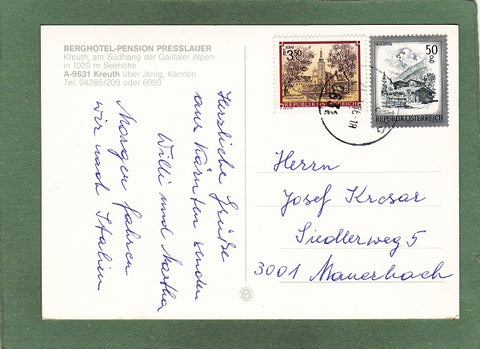 BERGHOTEL-PENSION PRESSLAUER
Kreuth, am Südhang der Gailtaler Alpen
in 1020 m Seehöhe
A-9631 Kreuth über Jenig, Kärnten
Tel. 04285/209 oder 6093
Herzliche Grüße
aus Kärnten senden
Willi und Martha
Morgen fahren
wir nach Italien
3.50
REPUBLIK ÖSTERREICH
50
g
REPUBLIK ÖSTERREICH
Herrn
Josef Krcsar
Siedlerweg 5
3001 Mauerbach